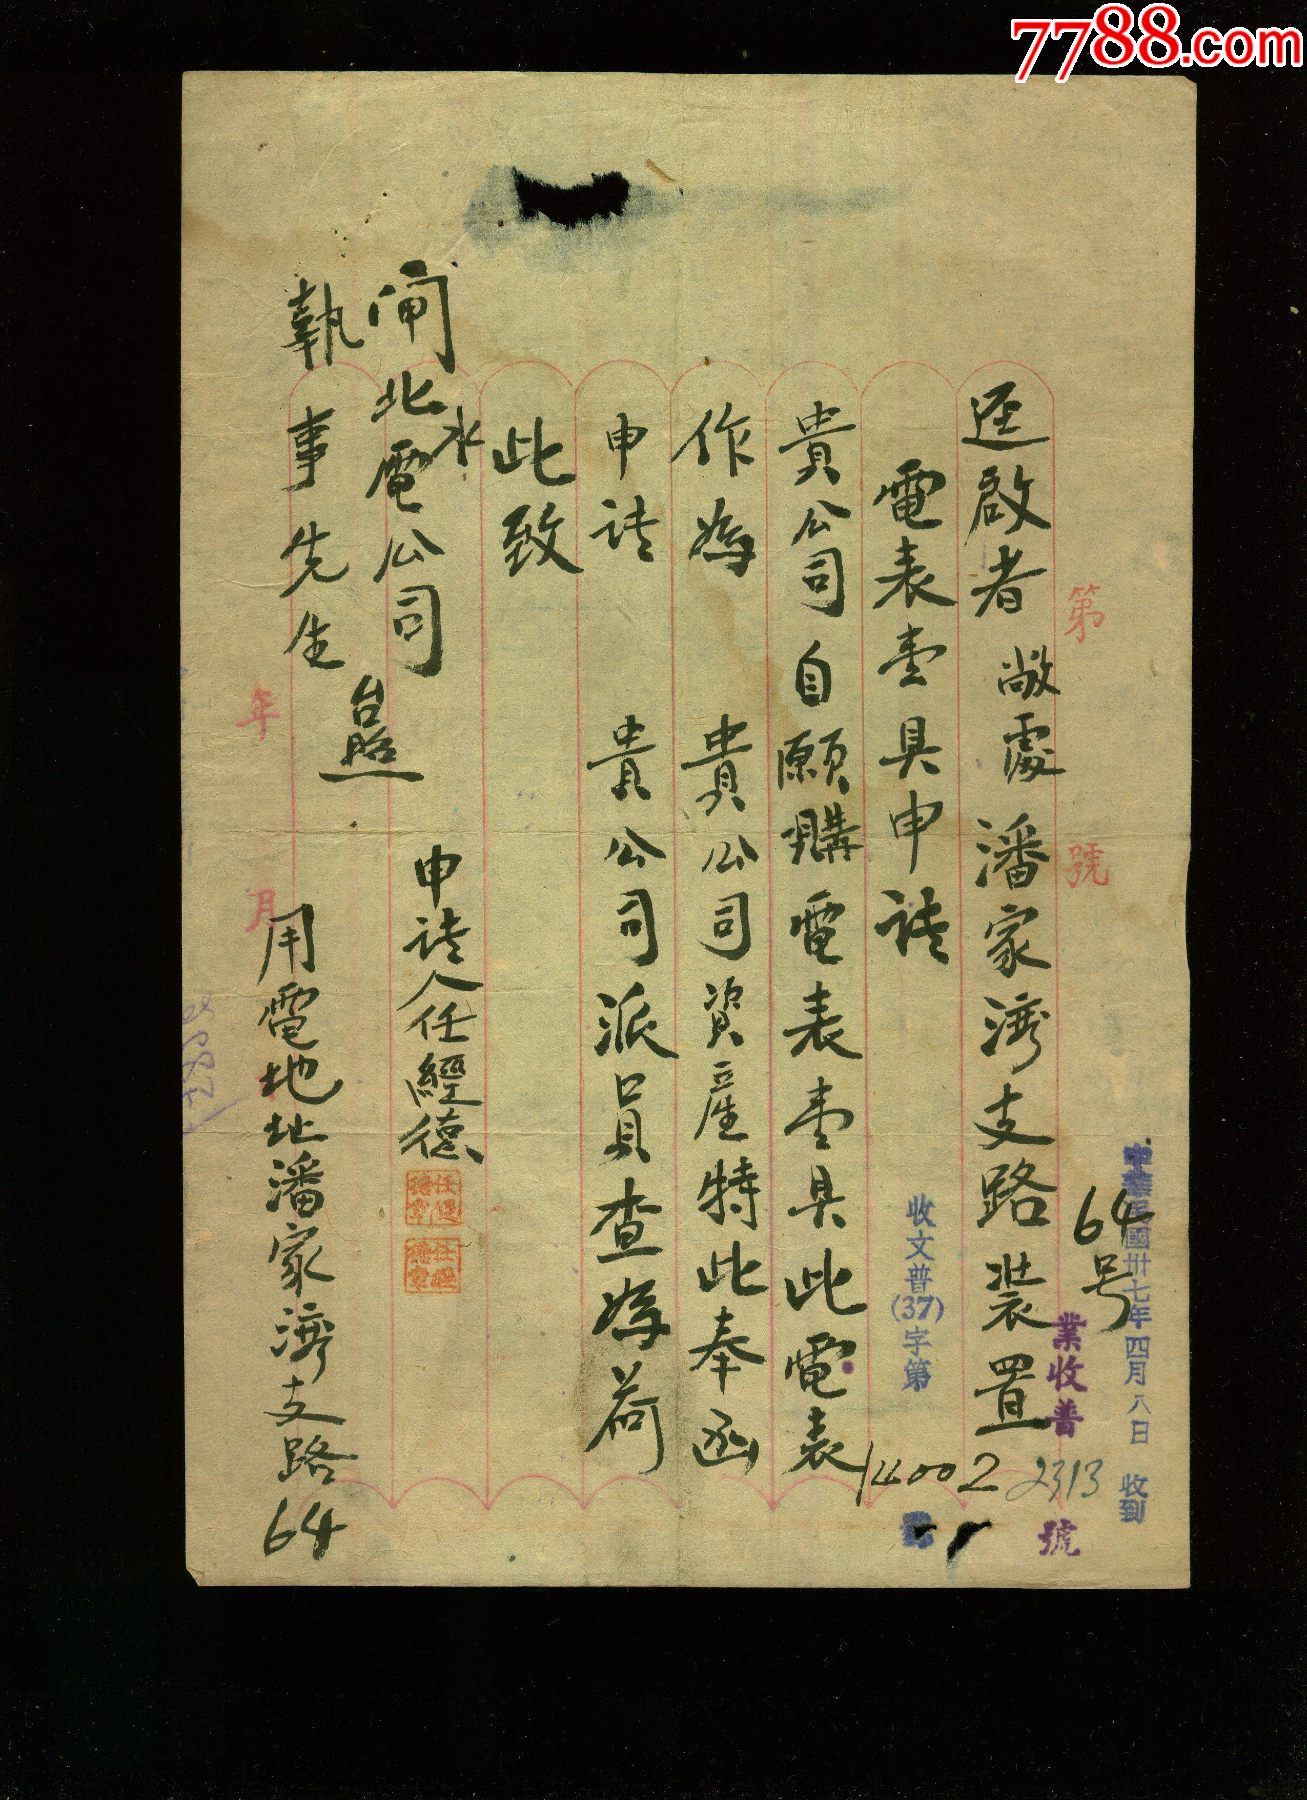 7788.com
中華民國卅七年四月八日 收到
64号
業收普 2313 號
第 號
迳啟者敝處潘家湾支路装置
電表壹具申请
收文普(37)字第
14002
貴公司自願購電表壹具此電表
作為 貴公司資產特此奉函
申请 貴公司派員查為荷
此致
闸北水電公司
執事先生 台照
申请人任經德
任經德章
任經德章
年 月
用電地址潘家湾支路64